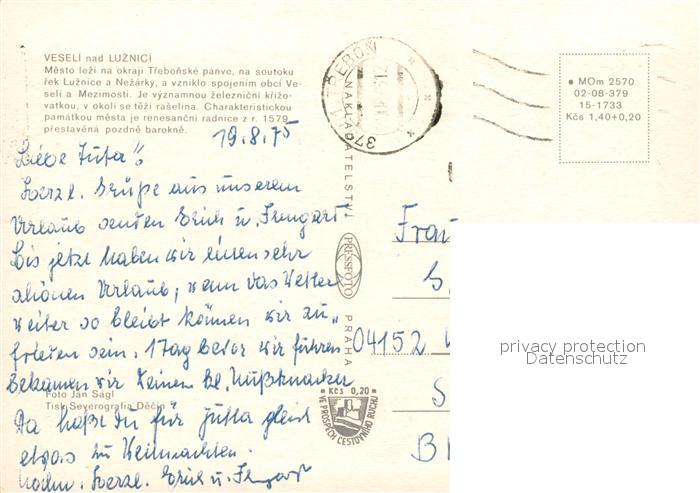 VESELÍ nad LUŽNICÍ
Město leží na okraji Třeboňské pánve, na soutoku
řek Lužnice a Nežárky, a vzniklo spojením obcí Ve-
selí a Mezimostí. Je významnou železniční křižo-
vatkou, v okolí se těží rašelina. Charakteristickou
památkou města je renesanční radnice z r. 1579
přestavěná pozdně barokně.
19.8.75
Liebe Jutta!
Herzl. Grüße aus unserem
Urlaub senden Erich u. Irmgard
Bis jetzt haben wir einen sehr
schönen Urlaub, wenn das Wetter
weiter so bleibt können wir zu-
frieden sein. 1 Tag bevor wir führen
bekamen wir Deinen kl. Nußknacker
Da haßt Du für Jutta gleich
etwas zu Weihnachten.
Nochm. Herzl. Erich u. Irmgard
Foto Jan Ságl
Tisk Severografia Děčín
NAKLADATELSTVÍ
PRESSFOTO
PRAHA
TŘEBOŇ
379
MOm 2570
02-08-379
15-1733
Kčs 1,40+0,20
Kčs 0,20
VE PROSPĚCH CESTOVNÍHO RUCHU
Frau
S
04152
S
privacy protection
Datenschutz